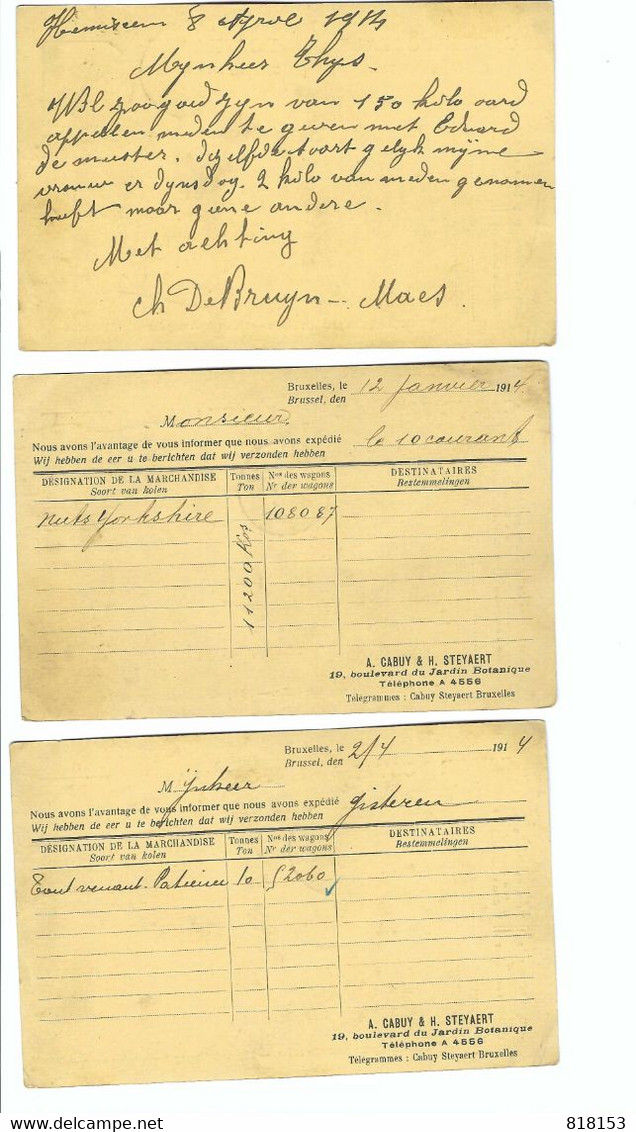 Hemixem 8 April 1914
Mynheer Thys.
Wil zoo goed zyn van 150 kilo aard
appelen meden te geven met Eduard
de muster. dezelfde soort gelyk myne
vrouw er dynsdag 2 kilo van meden genomen
heeft maar geene andere.
Met achting
Ch DeBruyn - Maes.
Bruxelles, le
Brussel, den 12 Janvier 1914
Monsieur
Nous avons l'avantage de vous informer que nous avons expédié le 10 courant
Wij hebben de eer u te berichten dat wij verzonden hebben
DÉSIGNATION DE LA MARCHANDISE Tonnes Nos des wagons DESTINATAIRES
Soort van kolen Ton Nr der wagons Bestemmelingen
nuts Yorkshire 11200 Kos 108087
A. CABUY & H. STEYAERT
19, boulevard du Jardin Botanique
Téléphone A 4556
Télégrammes : Cabuy Steyaert Bruxelles
Bruxelles, le
Brussel, den 2/4 1914
Mijnheer
Nous avons l'avantage de vous informer que nous avons expédié gisteren
Wij hebben de eer u te berichten dat wij verzonden hebben
DÉSIGNATION DE LA MARCHANDISE Tonnes Nos des wagons DESTINATAIRES
Soort van kolen Ton Nr der wagons Bestemmelingen
Tout venant Patience 10 52060
A. CABUY & H. STEYAERT
19, boulevard du Jardin Botanique
Téléphone A 4556
Télégrammes : Cabuy Steyaert Bruxelles
818153